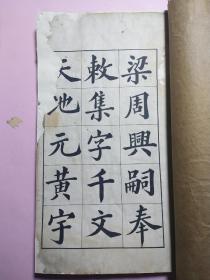 梁周興嗣奉
敕集字千文
天地元黃宇